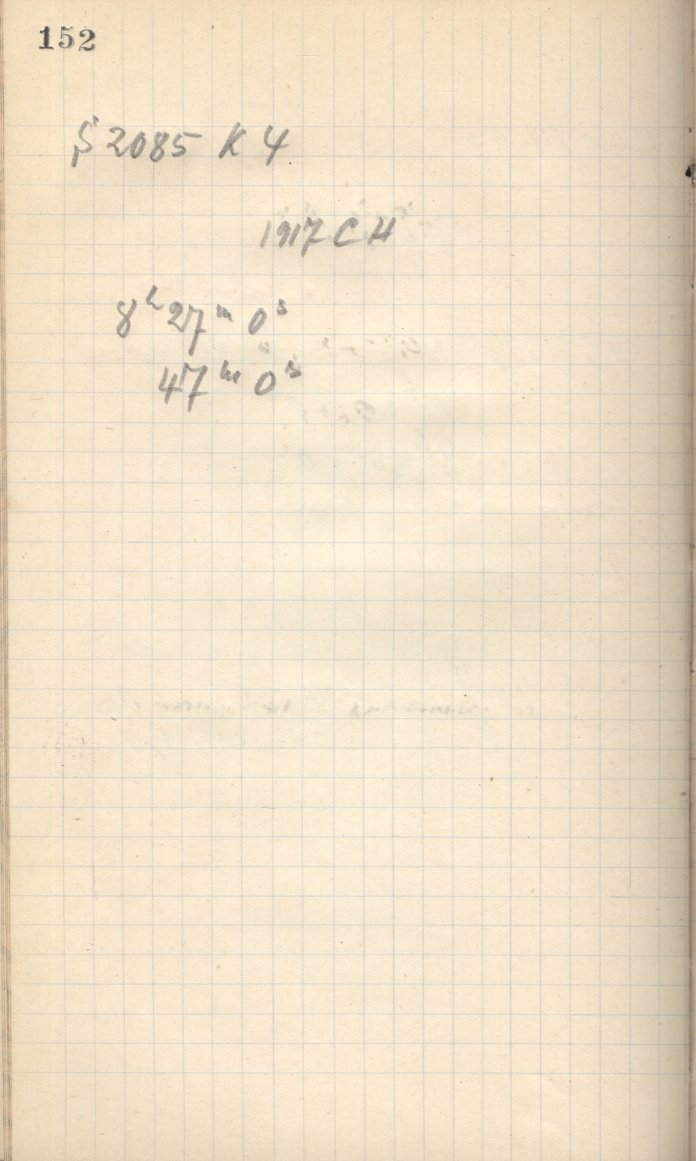 152
S 2085 K 4
1917 C H
8ʰ 27ᵐ 0ˢ
47ᵐ 0ˢ